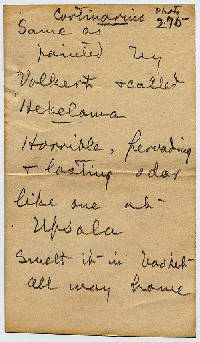 Cortinarius Photo
295
Same as
painted by
Volkert & called
Hebeloma
Horrible, pervading
& lasting odor
like one at
Upsala
Smelt it in basket
all way home